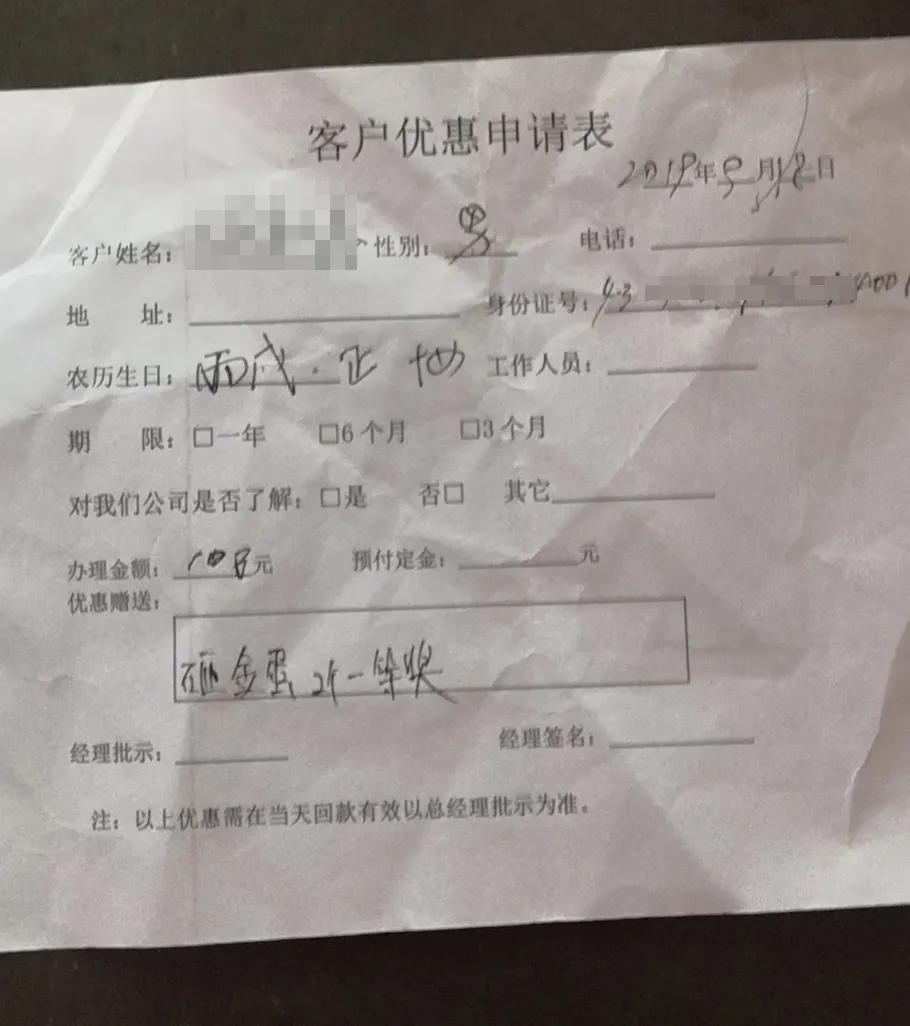 客户优惠申请表
2019年9月18日
客户姓名： 性别：男 电话：
地 址： 身份证号：43
农历生日： 正 工作人员：
期 限：□一年 □6个月 □3个月
对我们公司是否了解：□是 否□ 其它
办理金额： 元 预付定金： 元
优惠赠送：
砸金蛋 2个一等奖
经理批示： 经理签名：
注：以上优惠需在当天回款有效以总经理批示为准。